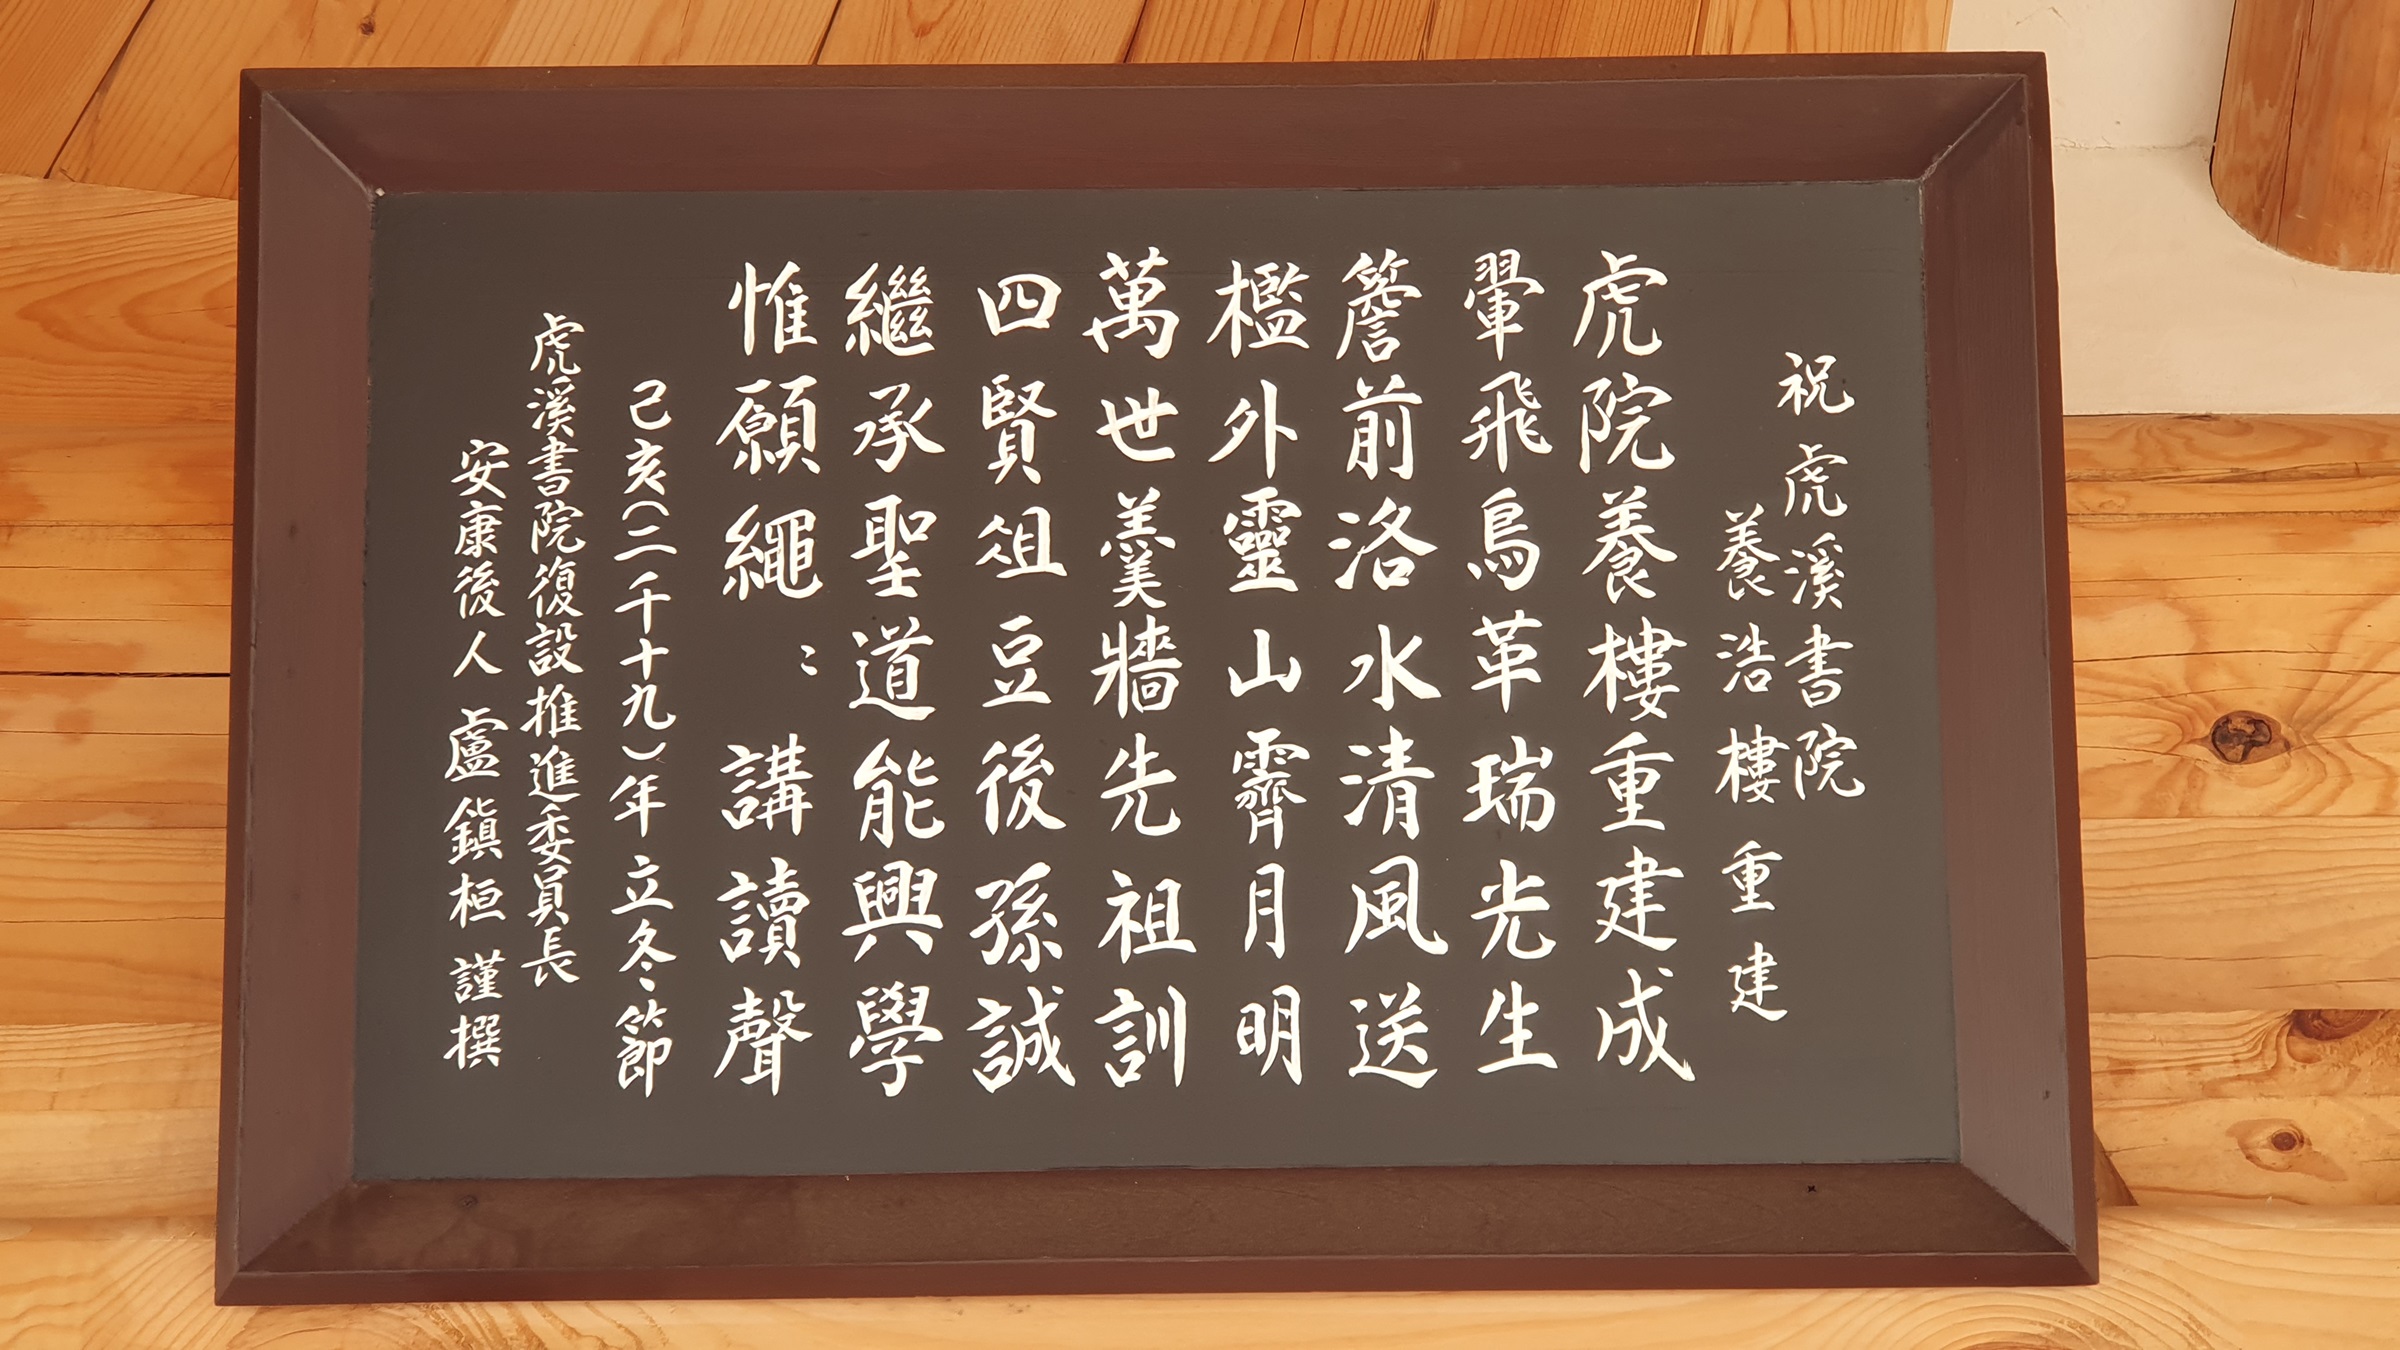 祝虎溪書院
養浩樓重建
虎院養樓重建成
翬飛鳥革瑞光生
簷前洛水清風送
檻外靈山霽月明
萬世羹牆先祖訓
四賢俎豆後孫誠
繼承聖道能興學
惟願繩〻講讀聲
己亥(二千十九)年立冬節
虎溪書院復設推進委員長
安康後人 盧鎭桓 謹撰